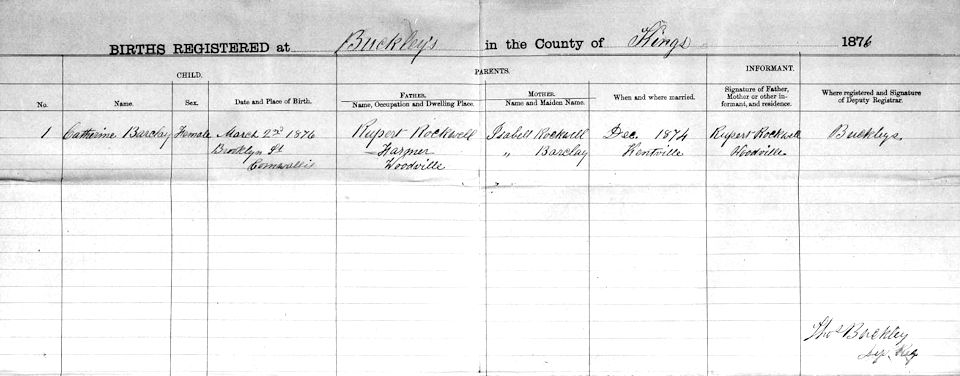 BIRTHS REGISTERED at Buckley's in the County of Kings 1876
CHILD. PARENTS. INFORMANT.
No. Name. Sex. Date and Place of Birth. FATHER. Name, Occupation and Dwelling Place. MOTHER. Name and Maiden Name. When and where married. Signature of Father, Mother or other informant, and residence. Where registered and Signature of Deputy Registrar.
1 Catherine Barclay Female March 2nd 1876 Rupert Rockwell Isabell Rockwell Dec. 1874 Rupert Rockwell Buckleys
Brooklyn St Farmer " Barclay Kentville Woodville
Cornwallis Woodville
Thos Buckley
Dep. Reg